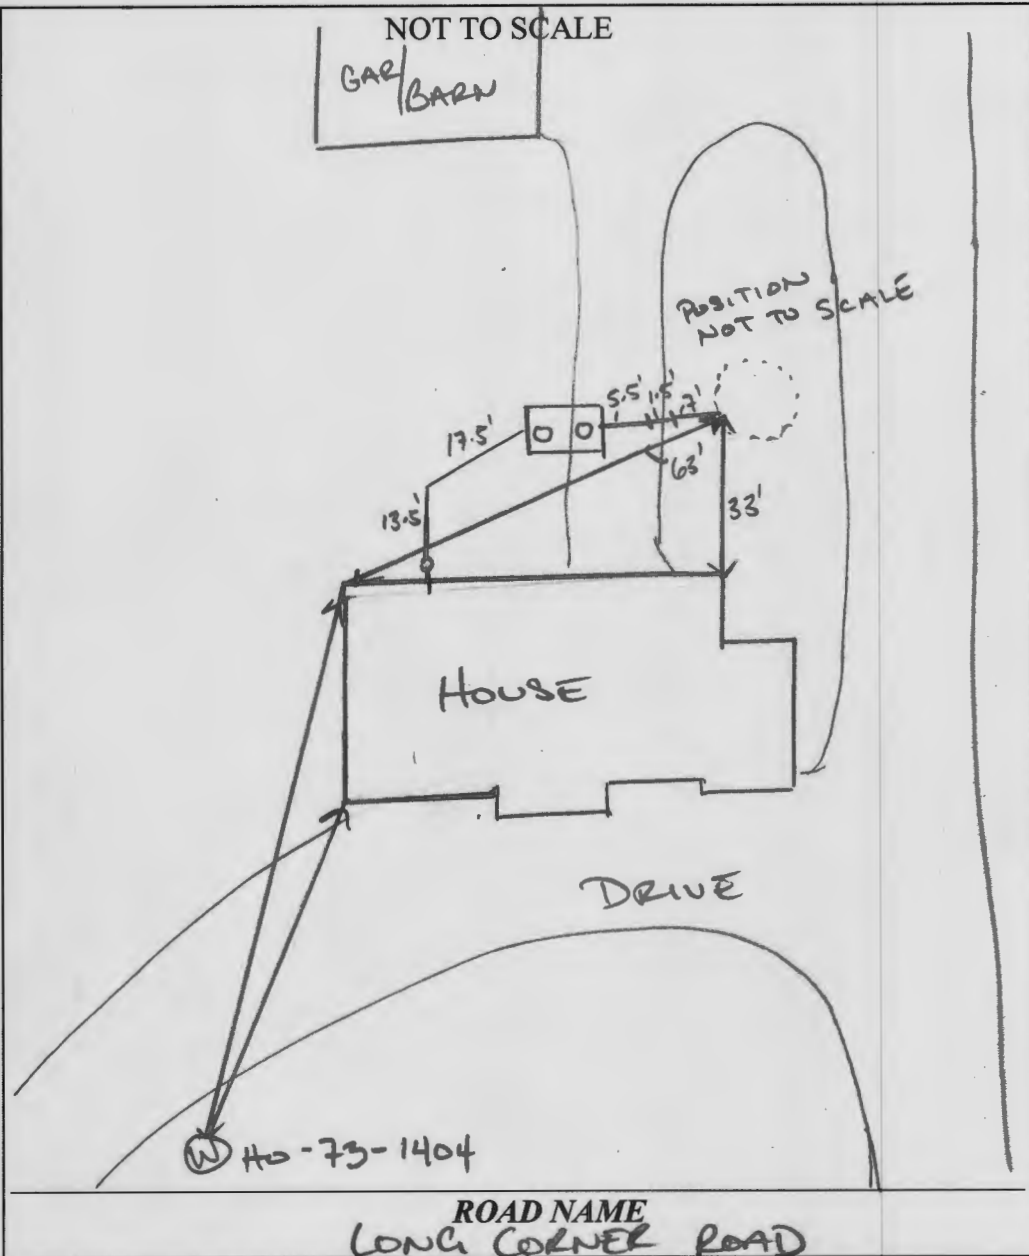 NOT TO SCALE
GAR/
BARN
POSITION
NOT TO SCALE
5.5' 1.5' 7'
17.5'
63'
13.5'
33'
HOUSE
DRIVE
W HO-73-1404
ROAD NAME
LONG CORNER ROAD